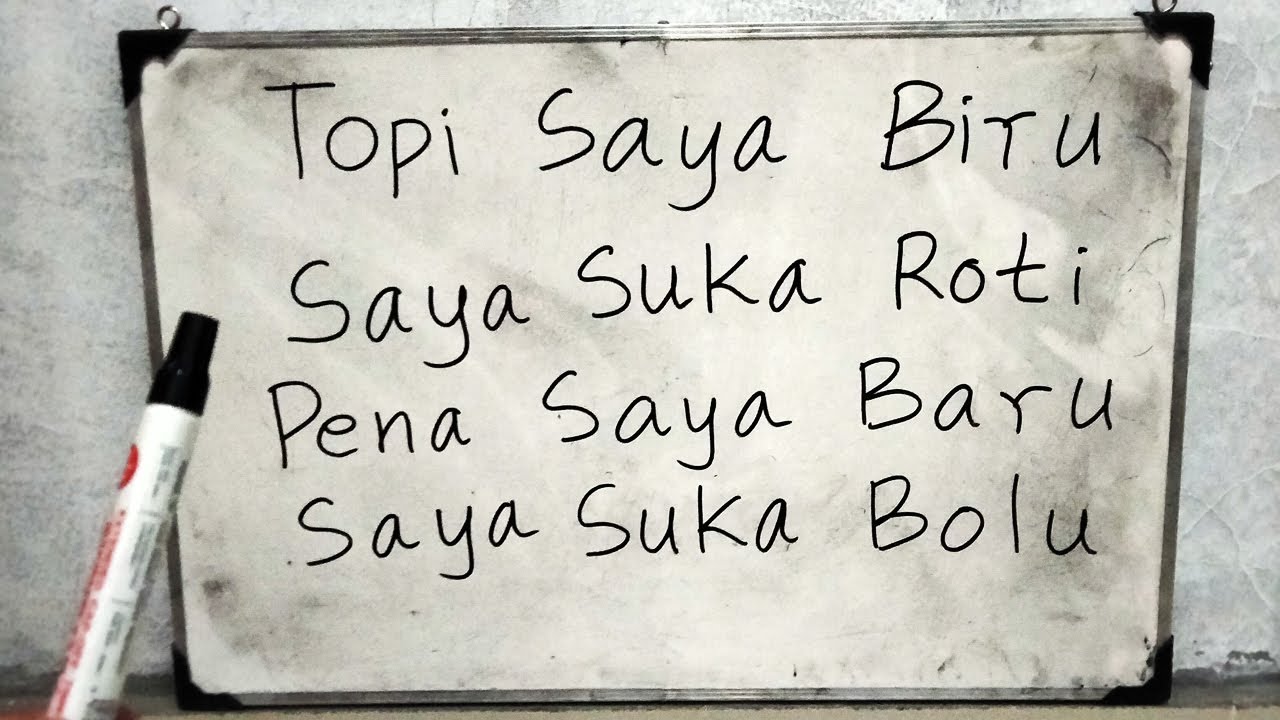 Topi Saya Biru
Saya Suka Roti
Pena Saya Baru
Saya Suka Bolu